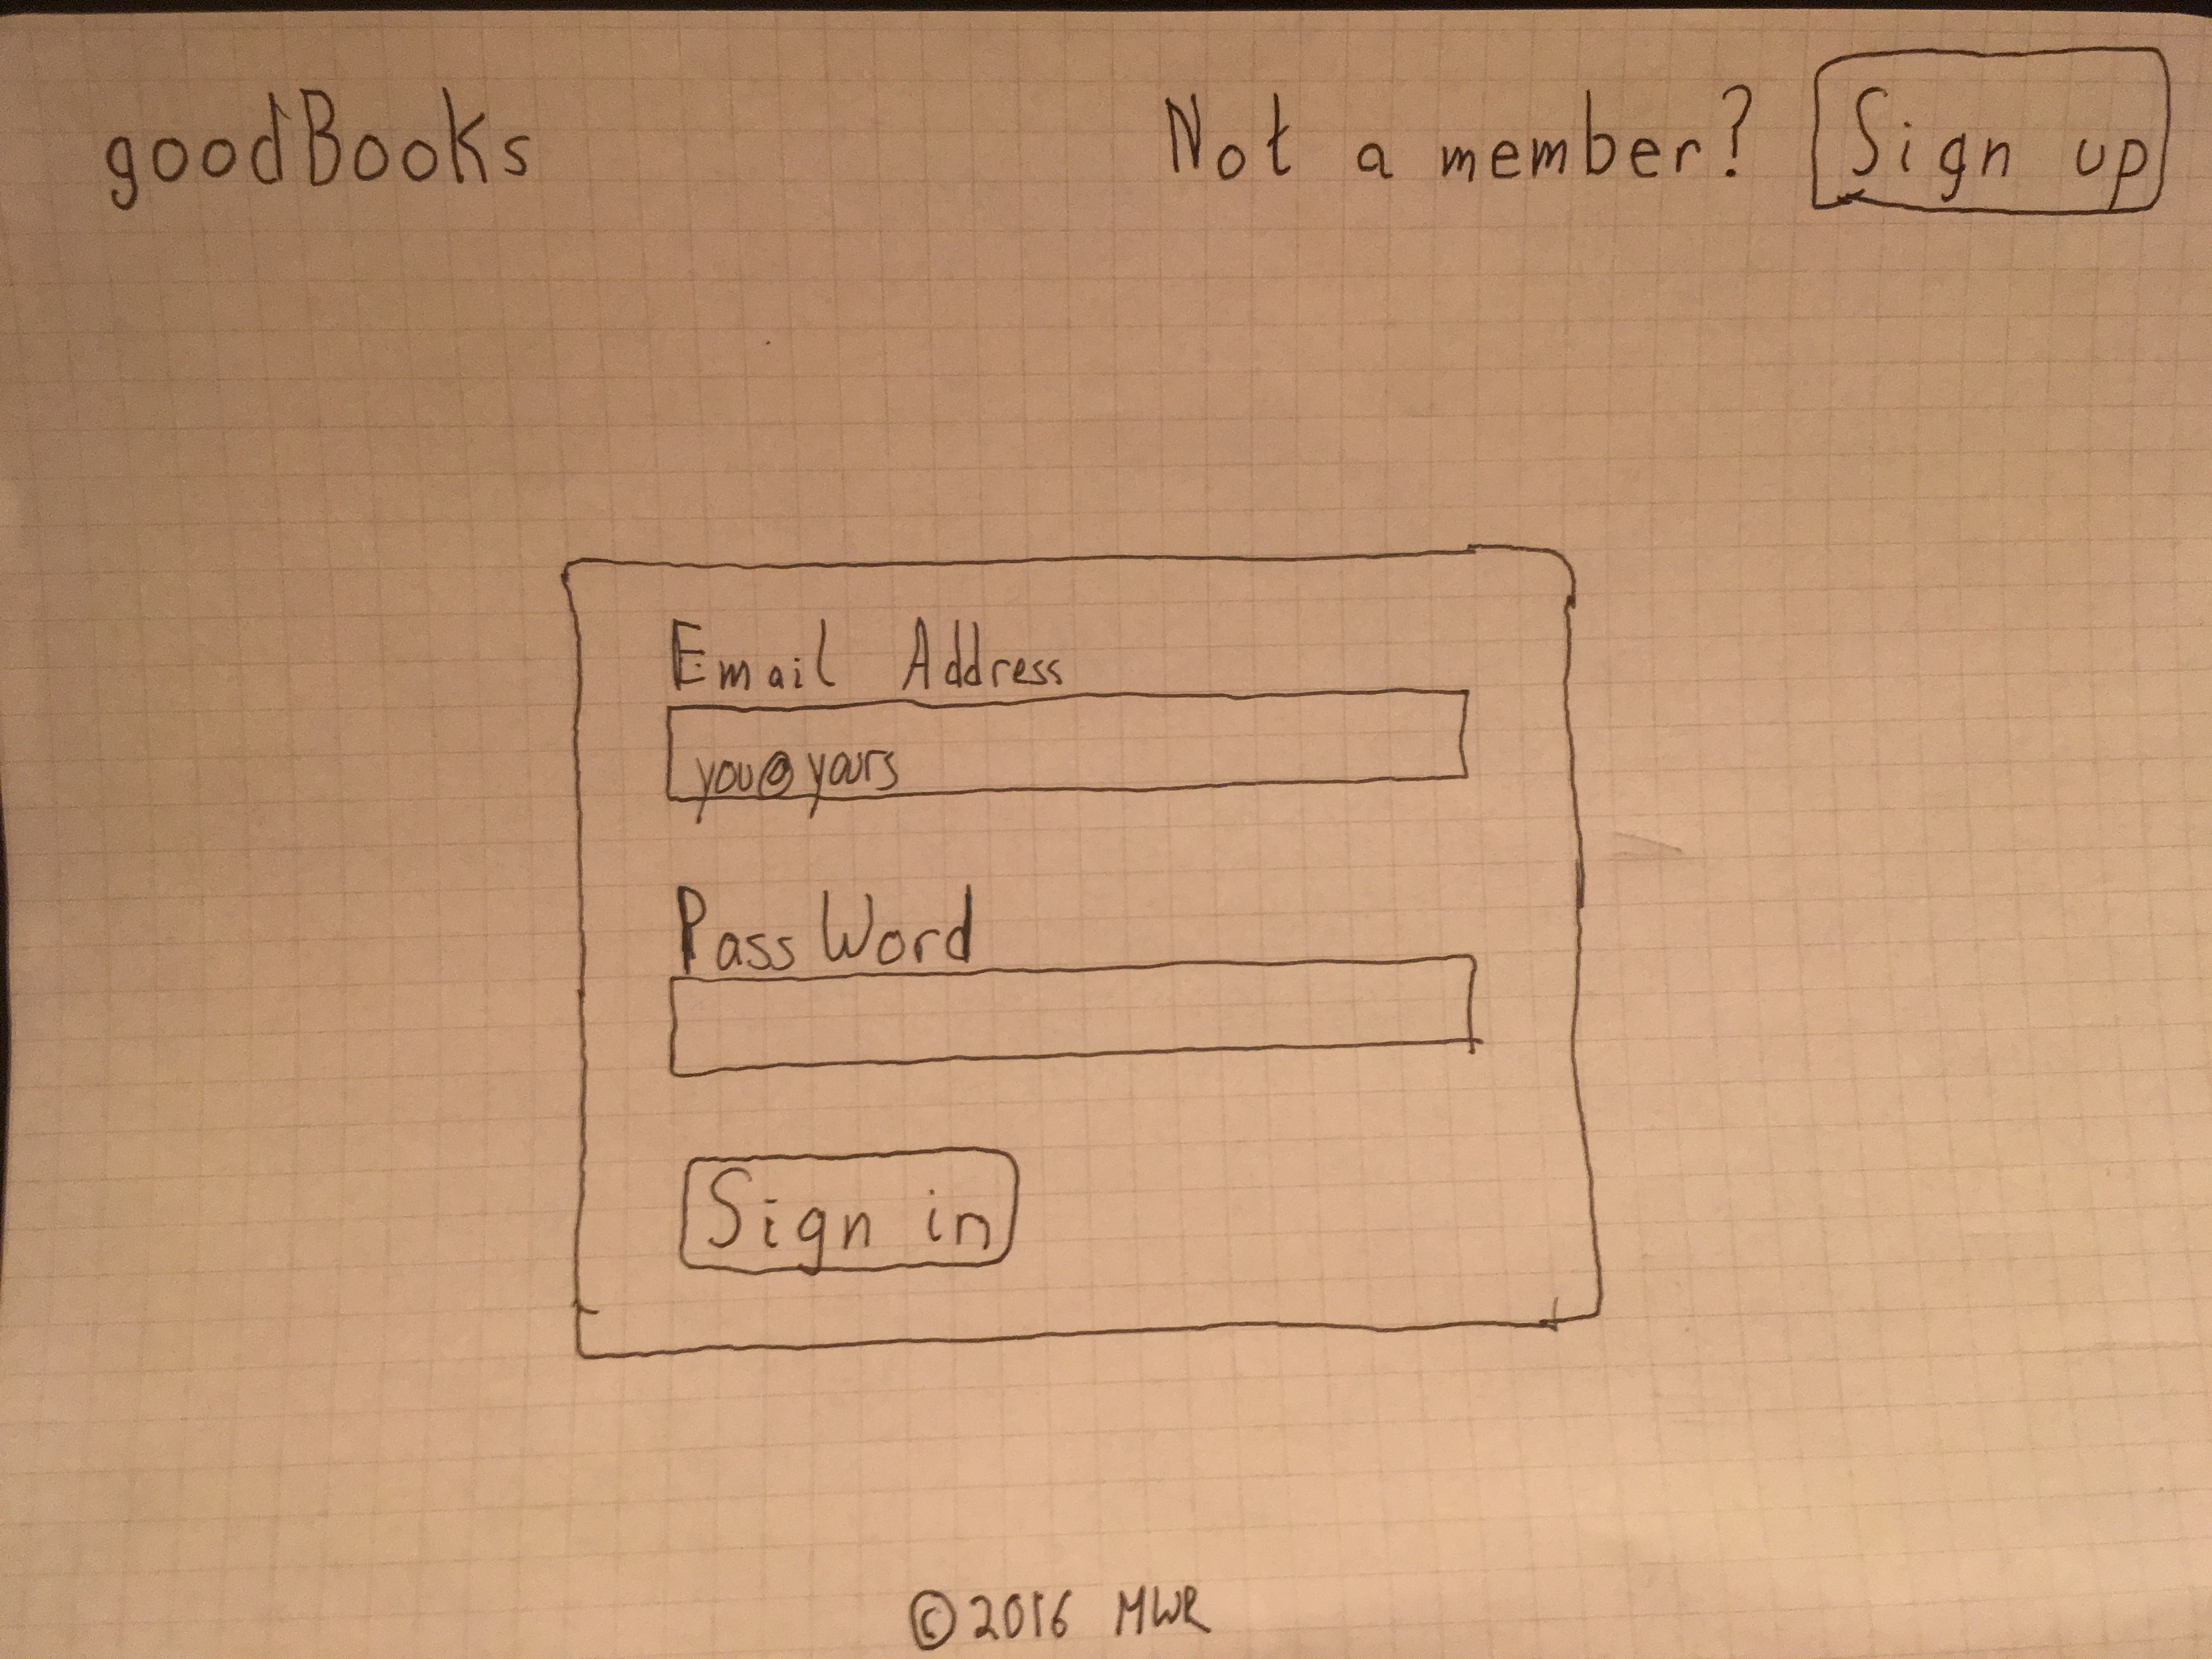 goodBooks
Not a member? Sign up
Email Address
you@yours
PassWord
Sign in
©2016 MWR